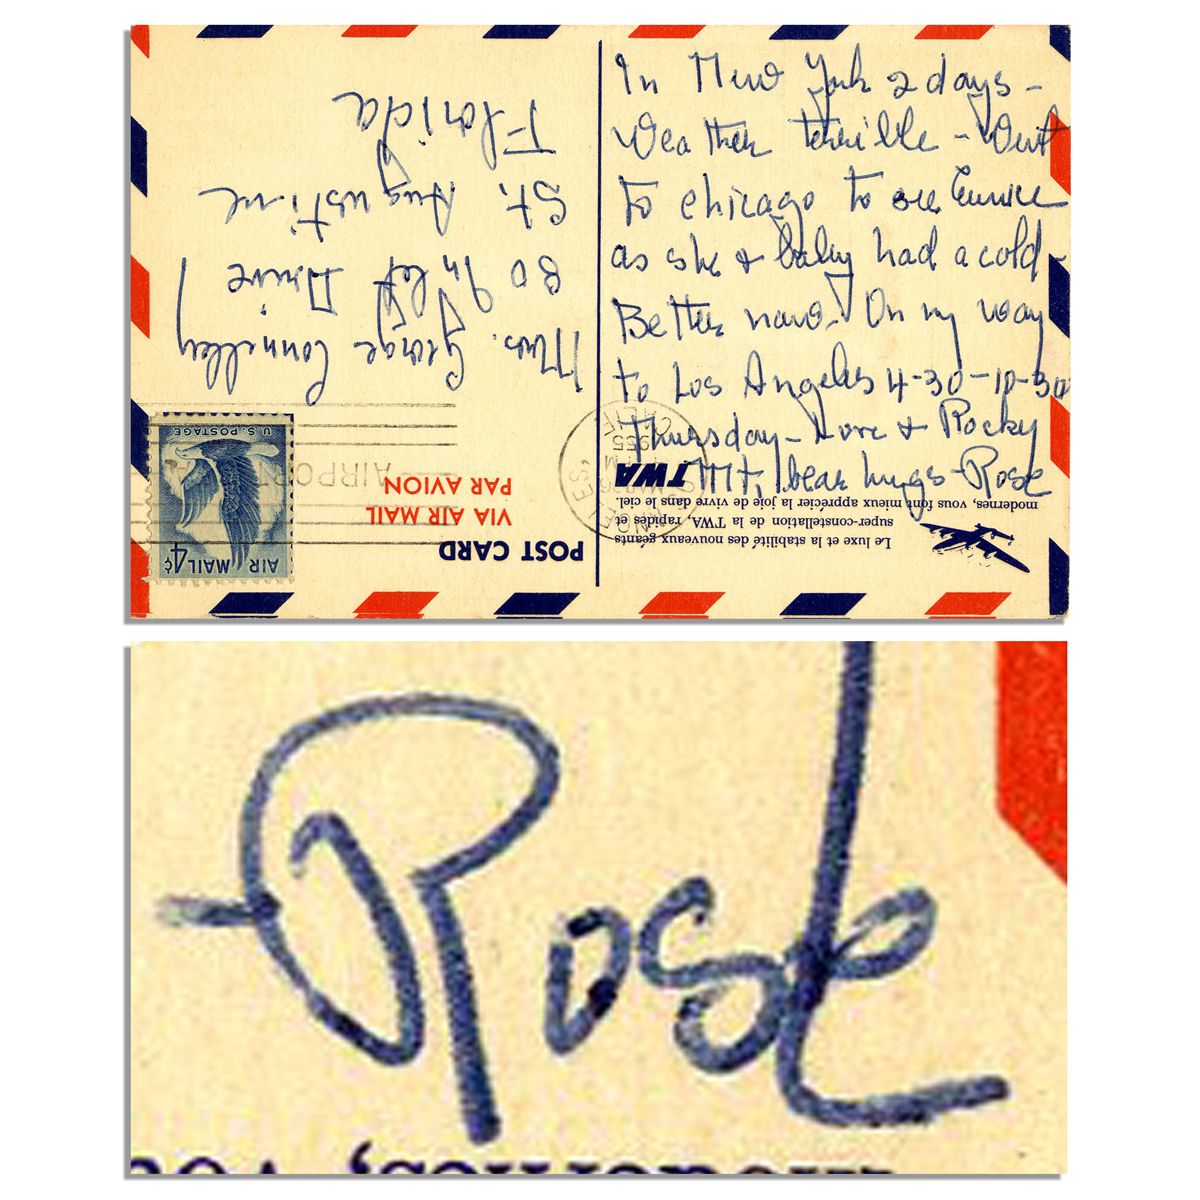 In New York 2 days -
Weather terrible - Went
to Chicago to see Eunice
as she & baby had a cold -
Better now - On my way
to Los Angeles 4-30-10-30
Thursday - Love & Rocky
Mt, bear hugs - Rose
Mrs. George Connelley
80 Inlet Drive
St. Augustine
Florida
POST CARD
VIA AIR MAIL
PAR AVION
AIR MAIL 4¢
U.S. POSTAGE
AIRPORT
1955
CALIF
TWA
Le luxe et la stabilité des nouveaux géants
super-constellation de la TWA, rapides et
modernes, vous font mieux apprécier la joie de vivre dans le ciel.
Rose